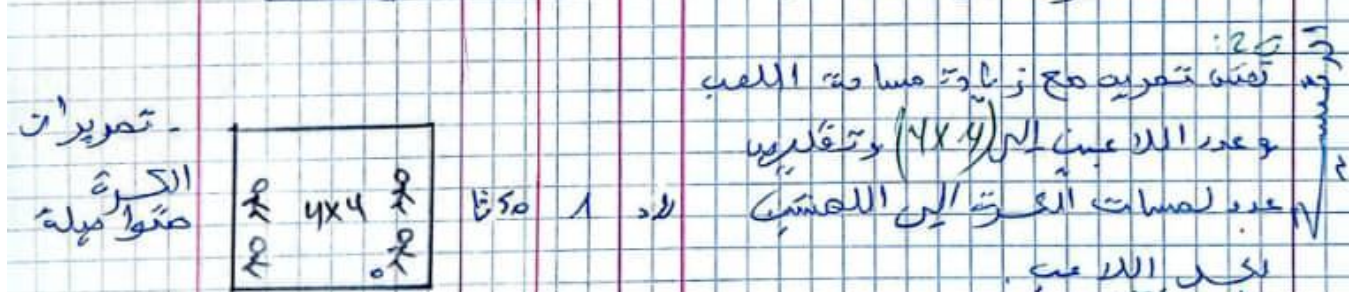 ت2:
نفس تمرين مع زيادة مساحة اللعب
وعدد اللاعبين إلى (4X4) وتقليص
عدد لمسات الكرة إلى اللمستين
لكل اللاعب.
1
4X4
- تمريرات
الكرة
متواصلة